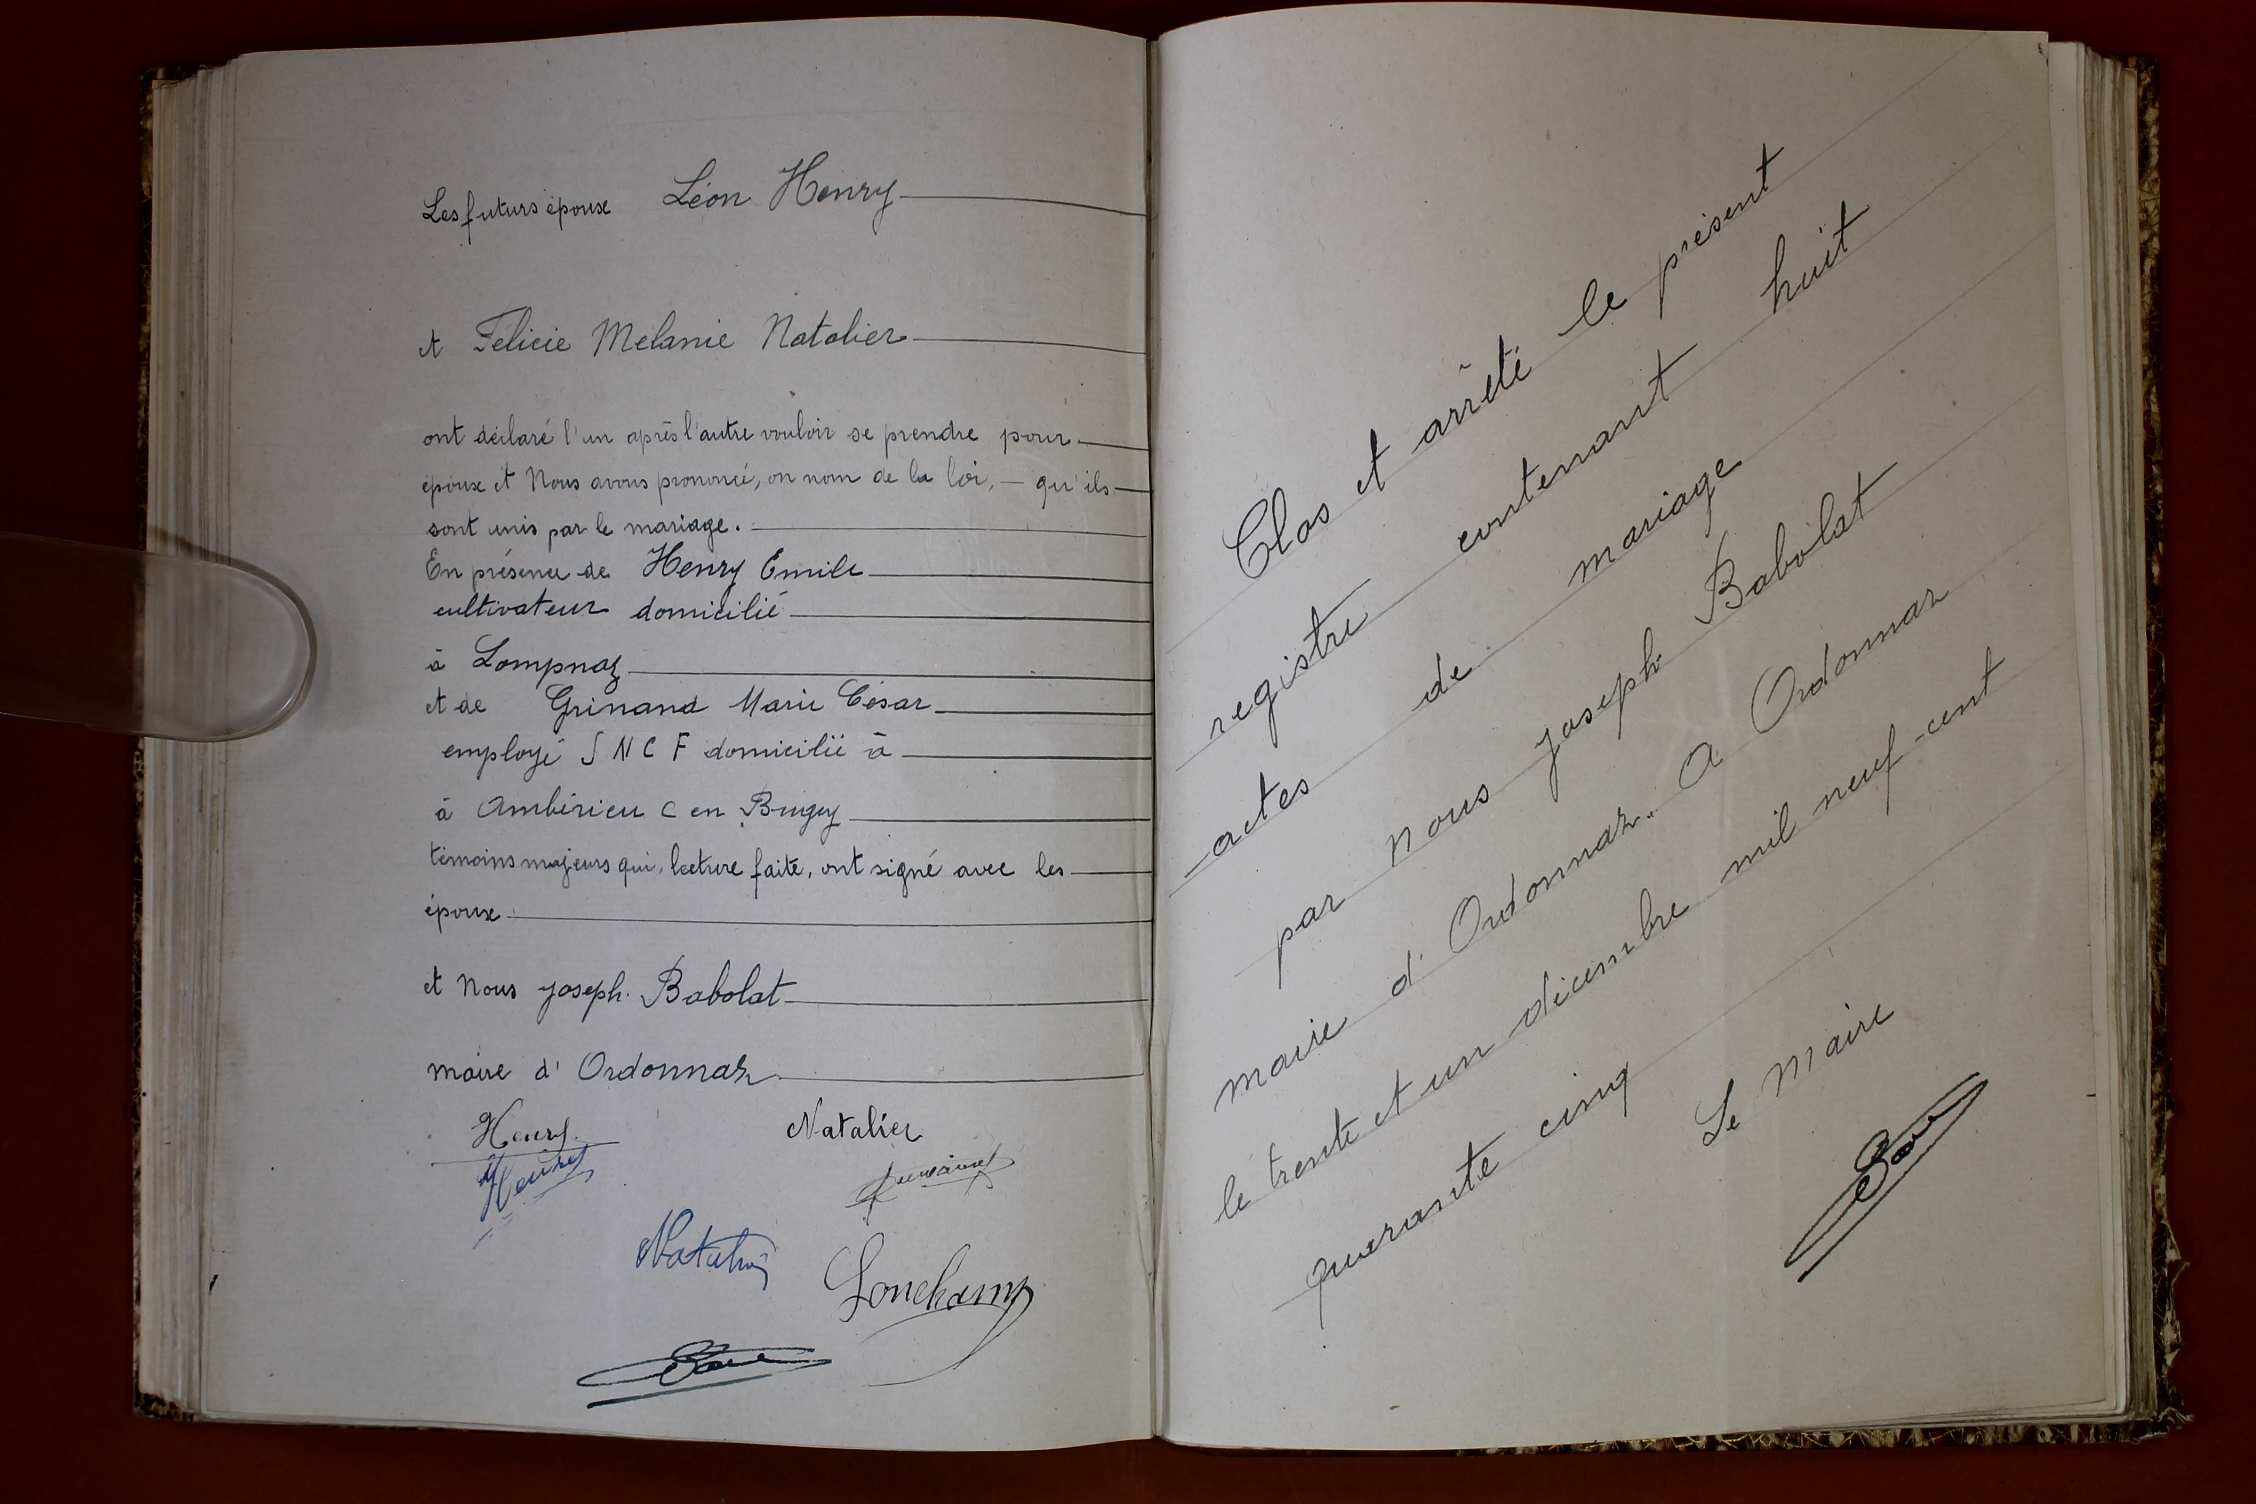 Les futurs époux Léon Henry
et Félicie Melanie Natalier
ont déclaré l'un après l'autre vouloir se prendre pour
époux et Nous avons prononcé, on nom de la loi, - qu'ils
sont unis par le mariage.
En présence de Henry Emile
cultivateur domicilié
à Lompnaz
et de Grinand Marie César
employé SNCF domicilié à
à Ambérieu C en Bugey
témoins majeurs qui, lecture faite, ont signé avec les
époux
et Nous Joseph Babolat
maire d'Ordonnaz
Henry Natalier
Henry
Natalier
Lonchamp
Clos et arrêté le présent
registre contenant huit
actes de mariage
par nous Joseph Babolat
maire d'Ordonnaz. A Ordonnaz
le trente et un décembre mil neuf-cent
quarante cinq
Le Maire